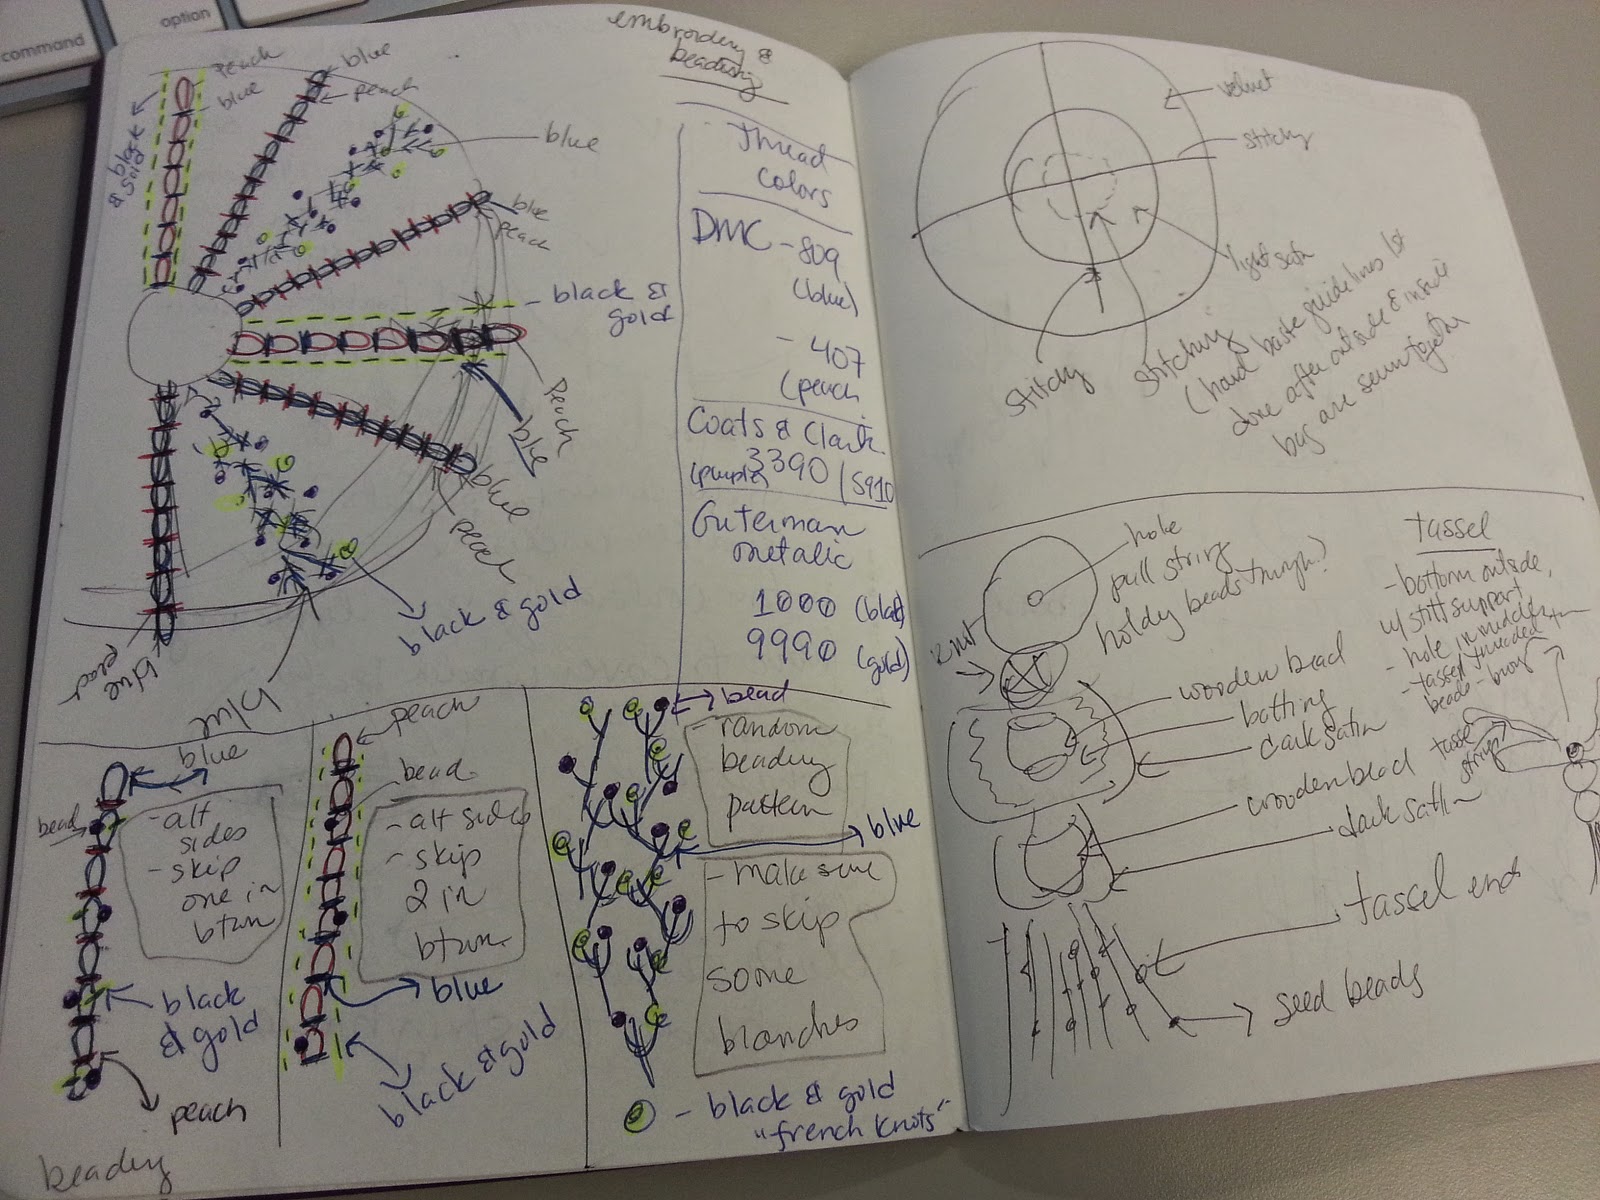 command
option
embroidery &
beading
Peach
blue
black
& gold
blue
peach
blue
blue
peach
black &
gold
Peach
blue
blue
peach
black & gold
blue
peach
Thread
Colors
DMC - 809
(blue)
- 407
(peach
Coats & Clark
(purple) 3390 / 5910
Guterman
metalic
1000 (black)
9990 (gold)
blue
bead
- alt
sides
- skip
one in
btwn
black
& gold
peach
beading
peach
bead
- alt sides
- skip
2 in
btwn.
blue
black & gold
bead
- random
beading
pattern
blue
- make sure
to skip
some
blanches
- black & gold
"french knots"
velvet
stitchy
light satin
stitchy
stitching
(hand baste guidelines 1st
done after outside & inside
bag are sewn together
hole
pull string
holdy beads through?
knot
wooden bead
batting
dark satin
wooden bead
dark satin
tassel ends
seed beads
tassel
- bottom outside,
w/ stiff support
- hole in middle
- tassel threaded
beads
tassel
strings